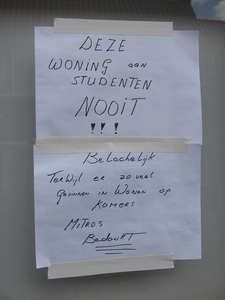 DEZE
WONING aan
STUDENTEN
NOOIT
!!!
Belachelijk
Terwijl er zoveel
Gezinnen in Wonen op
Kamers
Mitros
Bedankt